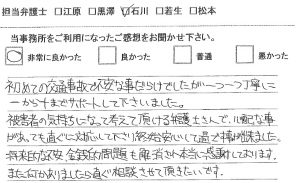 担当弁護士 □江原 □黒澤 ☑石川 □若生 □松本
当事務所をご利用になったご感想をお聞かせ下さい。
非常に良かった 良かった 普通 悪かった
初めての交通事故で不安な事だらけでしたが一つ一つ丁寧に
一から十までサポートして下さいました。
被害者の気持ちになって考えて頂ける弁護士さんで、心配な事
があっても直ぐに対応して下さり終始安心して過ご事が出来ました。
将来的な不安、金銭的問題も解消され本当に感謝しております。
また何かありましたら直ぐ相談させて頂きたいです。